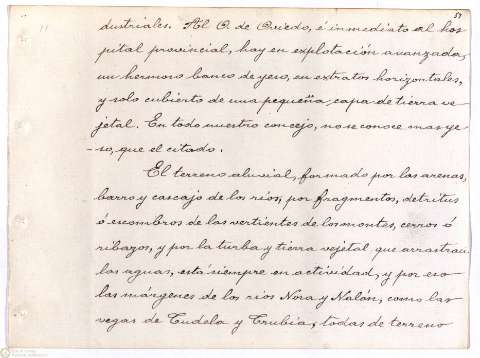 dustriales. Al O. de Oviedo, é inmediato al hos
pital provincial, hay en explotación avanzada,
un hermoso banco de yeso, en extratos horizontales,
y solo cubierto de una pequeña capa de tierra ve-
jetal. En todo nuestro concejo, no se conoce mas ye-
-so, que el citado.
El terreno aluvial, formado por las arenas,
barro y cascajo de los rios, por fragmentos, detritus
ó escombros de las vertientes de los montes, cerros ó
ribazos, y por la turba y tierra vejetal que arrastran
las aguas, está siempre en actividad, y por eso
las márgenes de los rios Nora y Nalón, como las
vegas de Tudela y Trubia, todas de terreno